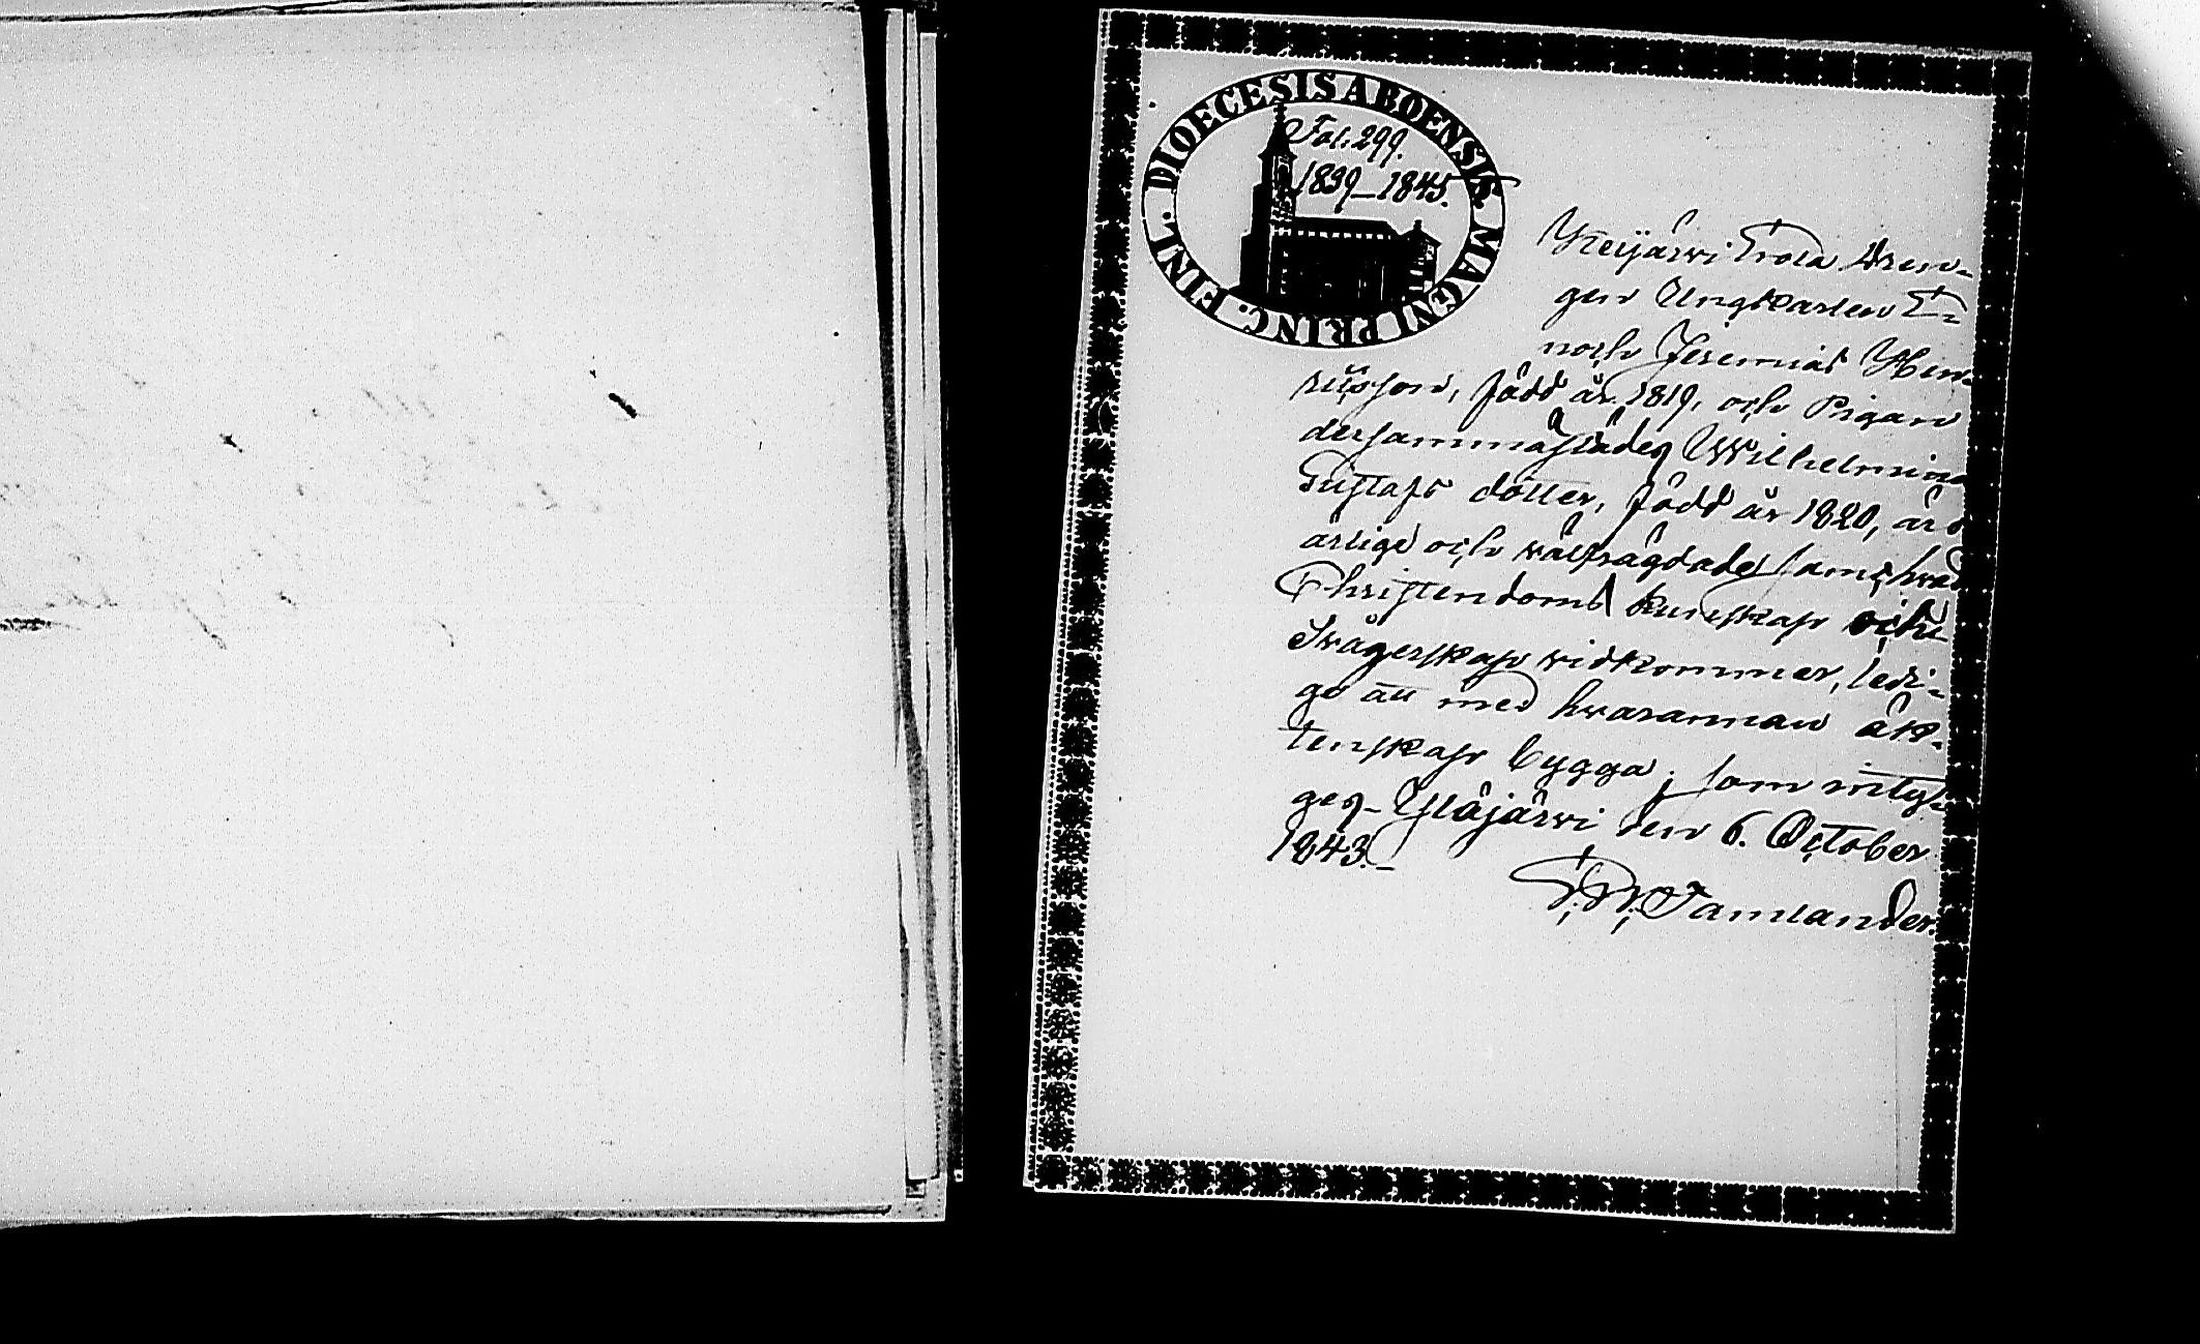 DIOECESIS ABOENSIS. MAGNI PRINC. FINL.
Fol. 299.
1839–1845.
Keijärwi Trola Dren-
gen Ungkarlen E-
noch Jeremias Hen-
ricsson, född år 1819, och Pigan
dersammastädes Wilhelmina
Gustafs dotter, född år 1820, äro
ärlige och välfrägdade, samt, hvad
Christendoms kunskap och
Swågerskap widkommer, ledi-
ge att med hwarannan äk-
tenskap bygga; som intyg-
ges. Ylöjärwi den 6. October
1843.–
Tamlander.